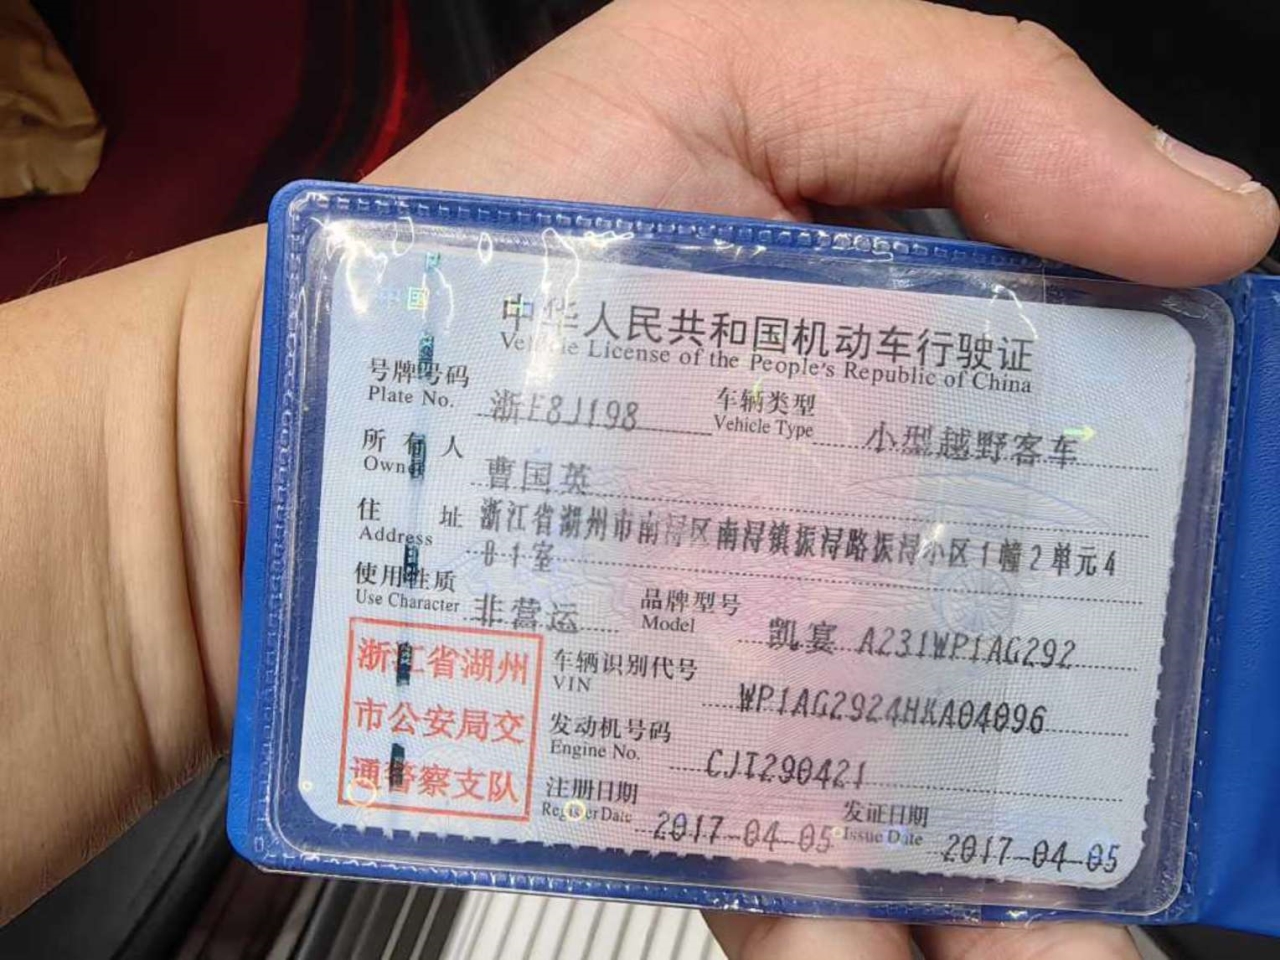 中国
中华人民共和国机动车行驶证
Vehicle License of the People's Republic of China
号牌号码 浙E8J198 车辆类型 小型越野客车
Plate No. Vehicle Type
所有人 曹国英
Owner
住址 浙江省湖州市南浔区南浔镇振浔路振浔小区1幢2单元4
Address 01室
使用性质 非营运 品牌型号 凯宴 A231WP1AG292
Use Character Model
浙江省湖州
市公安局交
通警察支队
车辆识别代号 WP1AG2924HKA04096
VIN
发动机号码 CJT290421
Engine No.
注册日期 2017-04-05 发证日期 2017-04-05
Register Date Issue Date